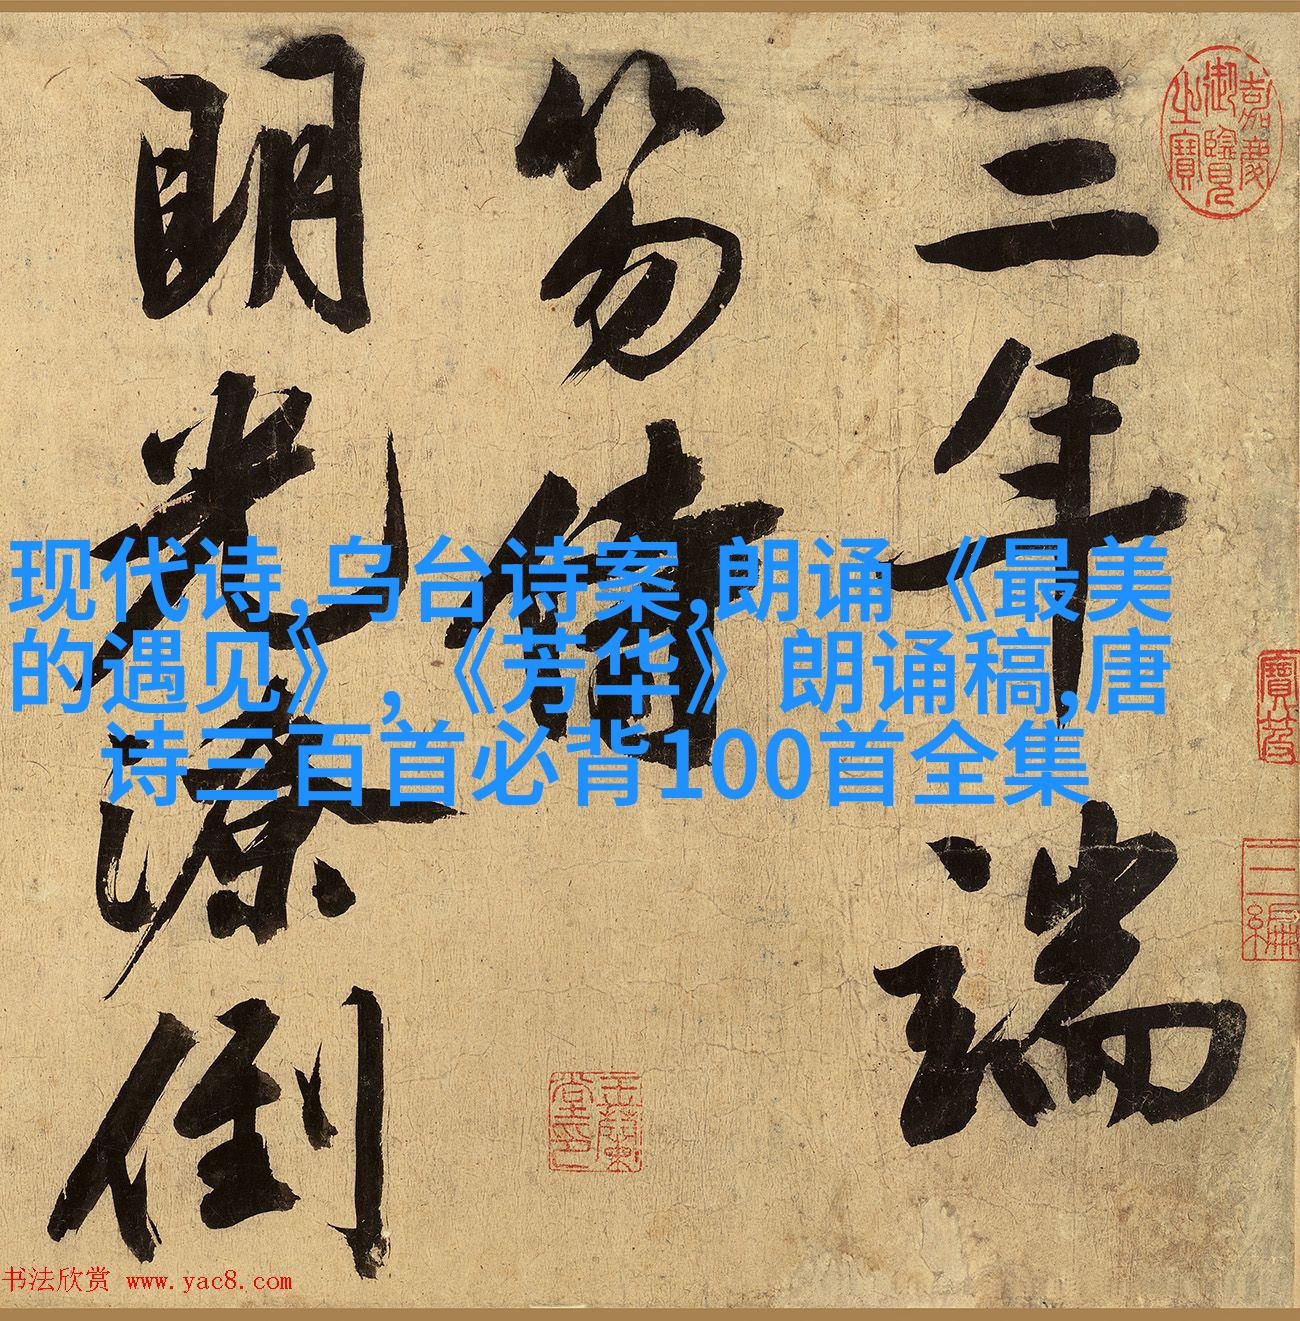 三年端
笏侍
明光潦倒
嘉慶
御覽
之寶
寶笈
三編
现代诗,乌台诗案,朗诵《最美
的遇见》,《芳华》朗诵稿,唐
诗三百首必背100首全集
书法欣赏 www.yac8.com